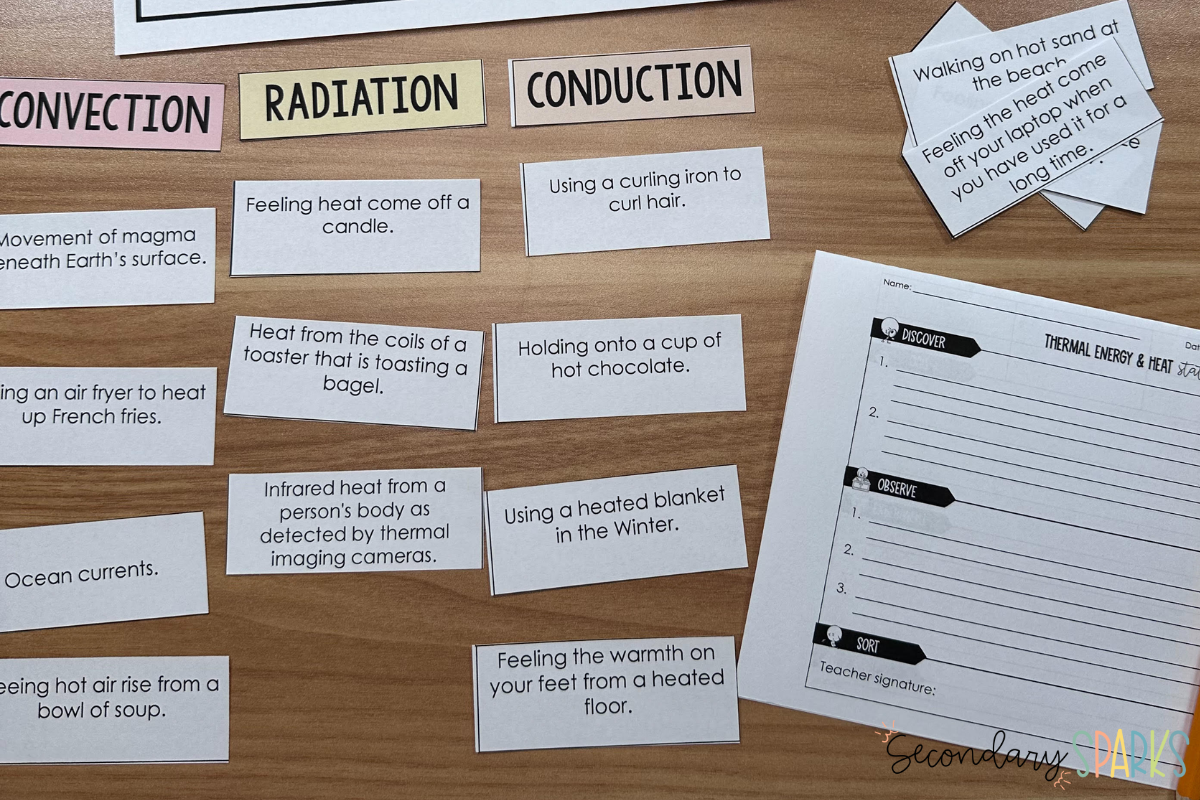 CONVECTION
Movement of magma
beneath Earth's surface.
Using an air fryer to heat
up French fries.
Ocean currents.
Seeing hot air rise from a
bowl of soup.
RADIATION
Feeling heat come off a
candle.
Heat from the coils of a
toaster that is toasting a
bagel.
Infrared heat from a
person's body as
detected by thermal
imaging cameras.
CONDUCTION
Using a curling iron to
curl hair.
Holding onto a cup of
hot chocolate.
Using a heated blanket
in the Winter.
Feeling the warmth on
your feet from a heated
floor.
Walking on hot sand at
the beach
Feeling the heat come
off your laptop when
you have used it for a
long time.
Name:
DISCOVER
THERMAL ENERGY & HEAT
1.
2.
OBSERVE
1.
2.
3.
SORT
Teacher signature:
Secondary SPARKS